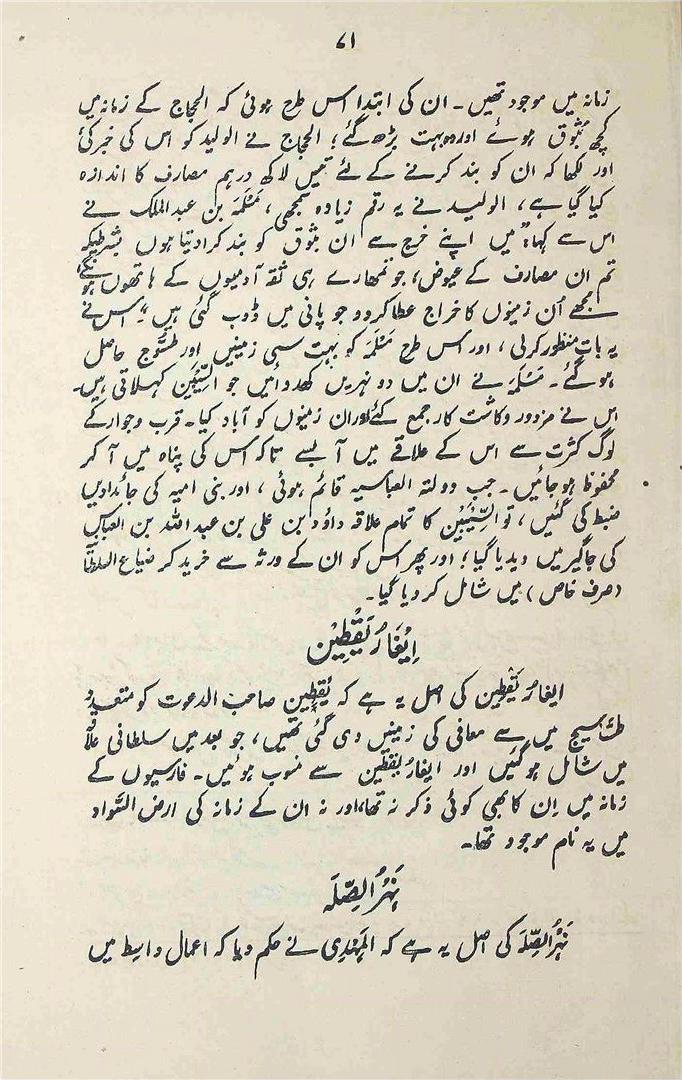 ۷۱
زمانہ میں موجود تھیں۔ ان کی ابتدا اس طرح ہوئی کہ الحجاج کے زمانہ میں
کچھ بُثوق ہوئے اور وہ بہت بڑھ گئے؛ الحجاج نے الولید کو اس کی خبر کی
اور لکھا کہ ان کو بند کرنے کے لئے تیس لاکھ درہم مصارف کا اندازہ
کیا گیا ہے، الولید نے یہ رقم زیادہ سمجھی، مَسْلَمَہ بن عبدالملک نے
اس سے کہا: "میں اپنے خرچ سے ان بثوق کو بند کرا دیتا ہوں بشرطیکہ
تم ان مصارف کے عیوض، جو تمھارے ہی ثقہ آدمیوں کے ہاتھوں ہونگے،
مجھے اُن زمینوں کا خراج عطا کر دو جو پانی میں ڈوب گئی ہیں"؛ اس نے
یہ بات منظور کر لی، اور اس طرح مَسْلَمَہ کو بہت سی زمینیں اور طسّوج حاصل
ہو گئے۔ مَسْلَمَہ نے ان میں دو نہریں کھدوائیں جو السِّیبَین کہلاتی ہیں۔
اس نے مزدور و کاشت کار جمع کئے اور ان زمینوں کو آباد کیا۔ قرب و جوار کے
لوگ کثرت سے اس کے علاقے میں آ بسے تاکہ اس کی پناہ میں آ کر
محفوظ ہو جائیں۔ جب دولتہ العباسیہ قائم ہوئی، اور بنی امیہ کی جائدادیں
ضبط کی گئیں، تو السِّیبَین کا تمام علاقہ داوٗد بن علی بن عبداللہ بن العباس
کی جاگیر میں دیدیا گیا؛ اور پھر اس کو ان کے ورثہ سے خرید کر ضیاع السلطان
(صرف خاص) میں شامل کر دیا گیا۔
اِیْغَارُ یَقْطِیْن
ایغارُ یَقْطِین کی اصل یہ ہے کہ یَقْطِین صاحب الدعوت کو متعدد
طساسیج میں سے معافی کی زمینیں دی گئی تھیں، جو بعد میں سلطانی علاقہ
میں شامل ہو گئیں اور ایغارُ یَقْطِین سے منسوب ہوئیں۔ فارسیوں کے
زمانہ میں اِن کا بھی کوئی ذکر نہ تھا، اور نہ ان کے زمانہ کی ارض السَّواد
میں یہ نام موجود تھا۔
نَہْرُ الصِّلَہ
نَہْرُ الصِّلَہ کی اصل یہ ہے کہ المَہْدِی نے حکم دیا کہ اعمال واسِط میں